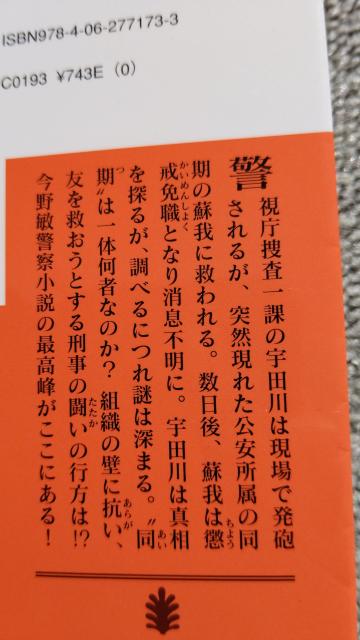 ISBN978-4-06-277173-3
C0193 ¥743E (0)
警視庁捜査一課の宇田川は現場で発砲
されるが、突然現れた公安所属の同
期の蘇我に救われる。数日後、蘇我は懲
戒免職となり消息不明に。宇田川は真相
を探るが、調べるにつれ謎は深まる。〝同
期〟は一体何者なのか? 組織の壁に抗い、
友を救おうとする刑事の闘いの行方は!?
今野敏警察小説の最高峰がここにある!